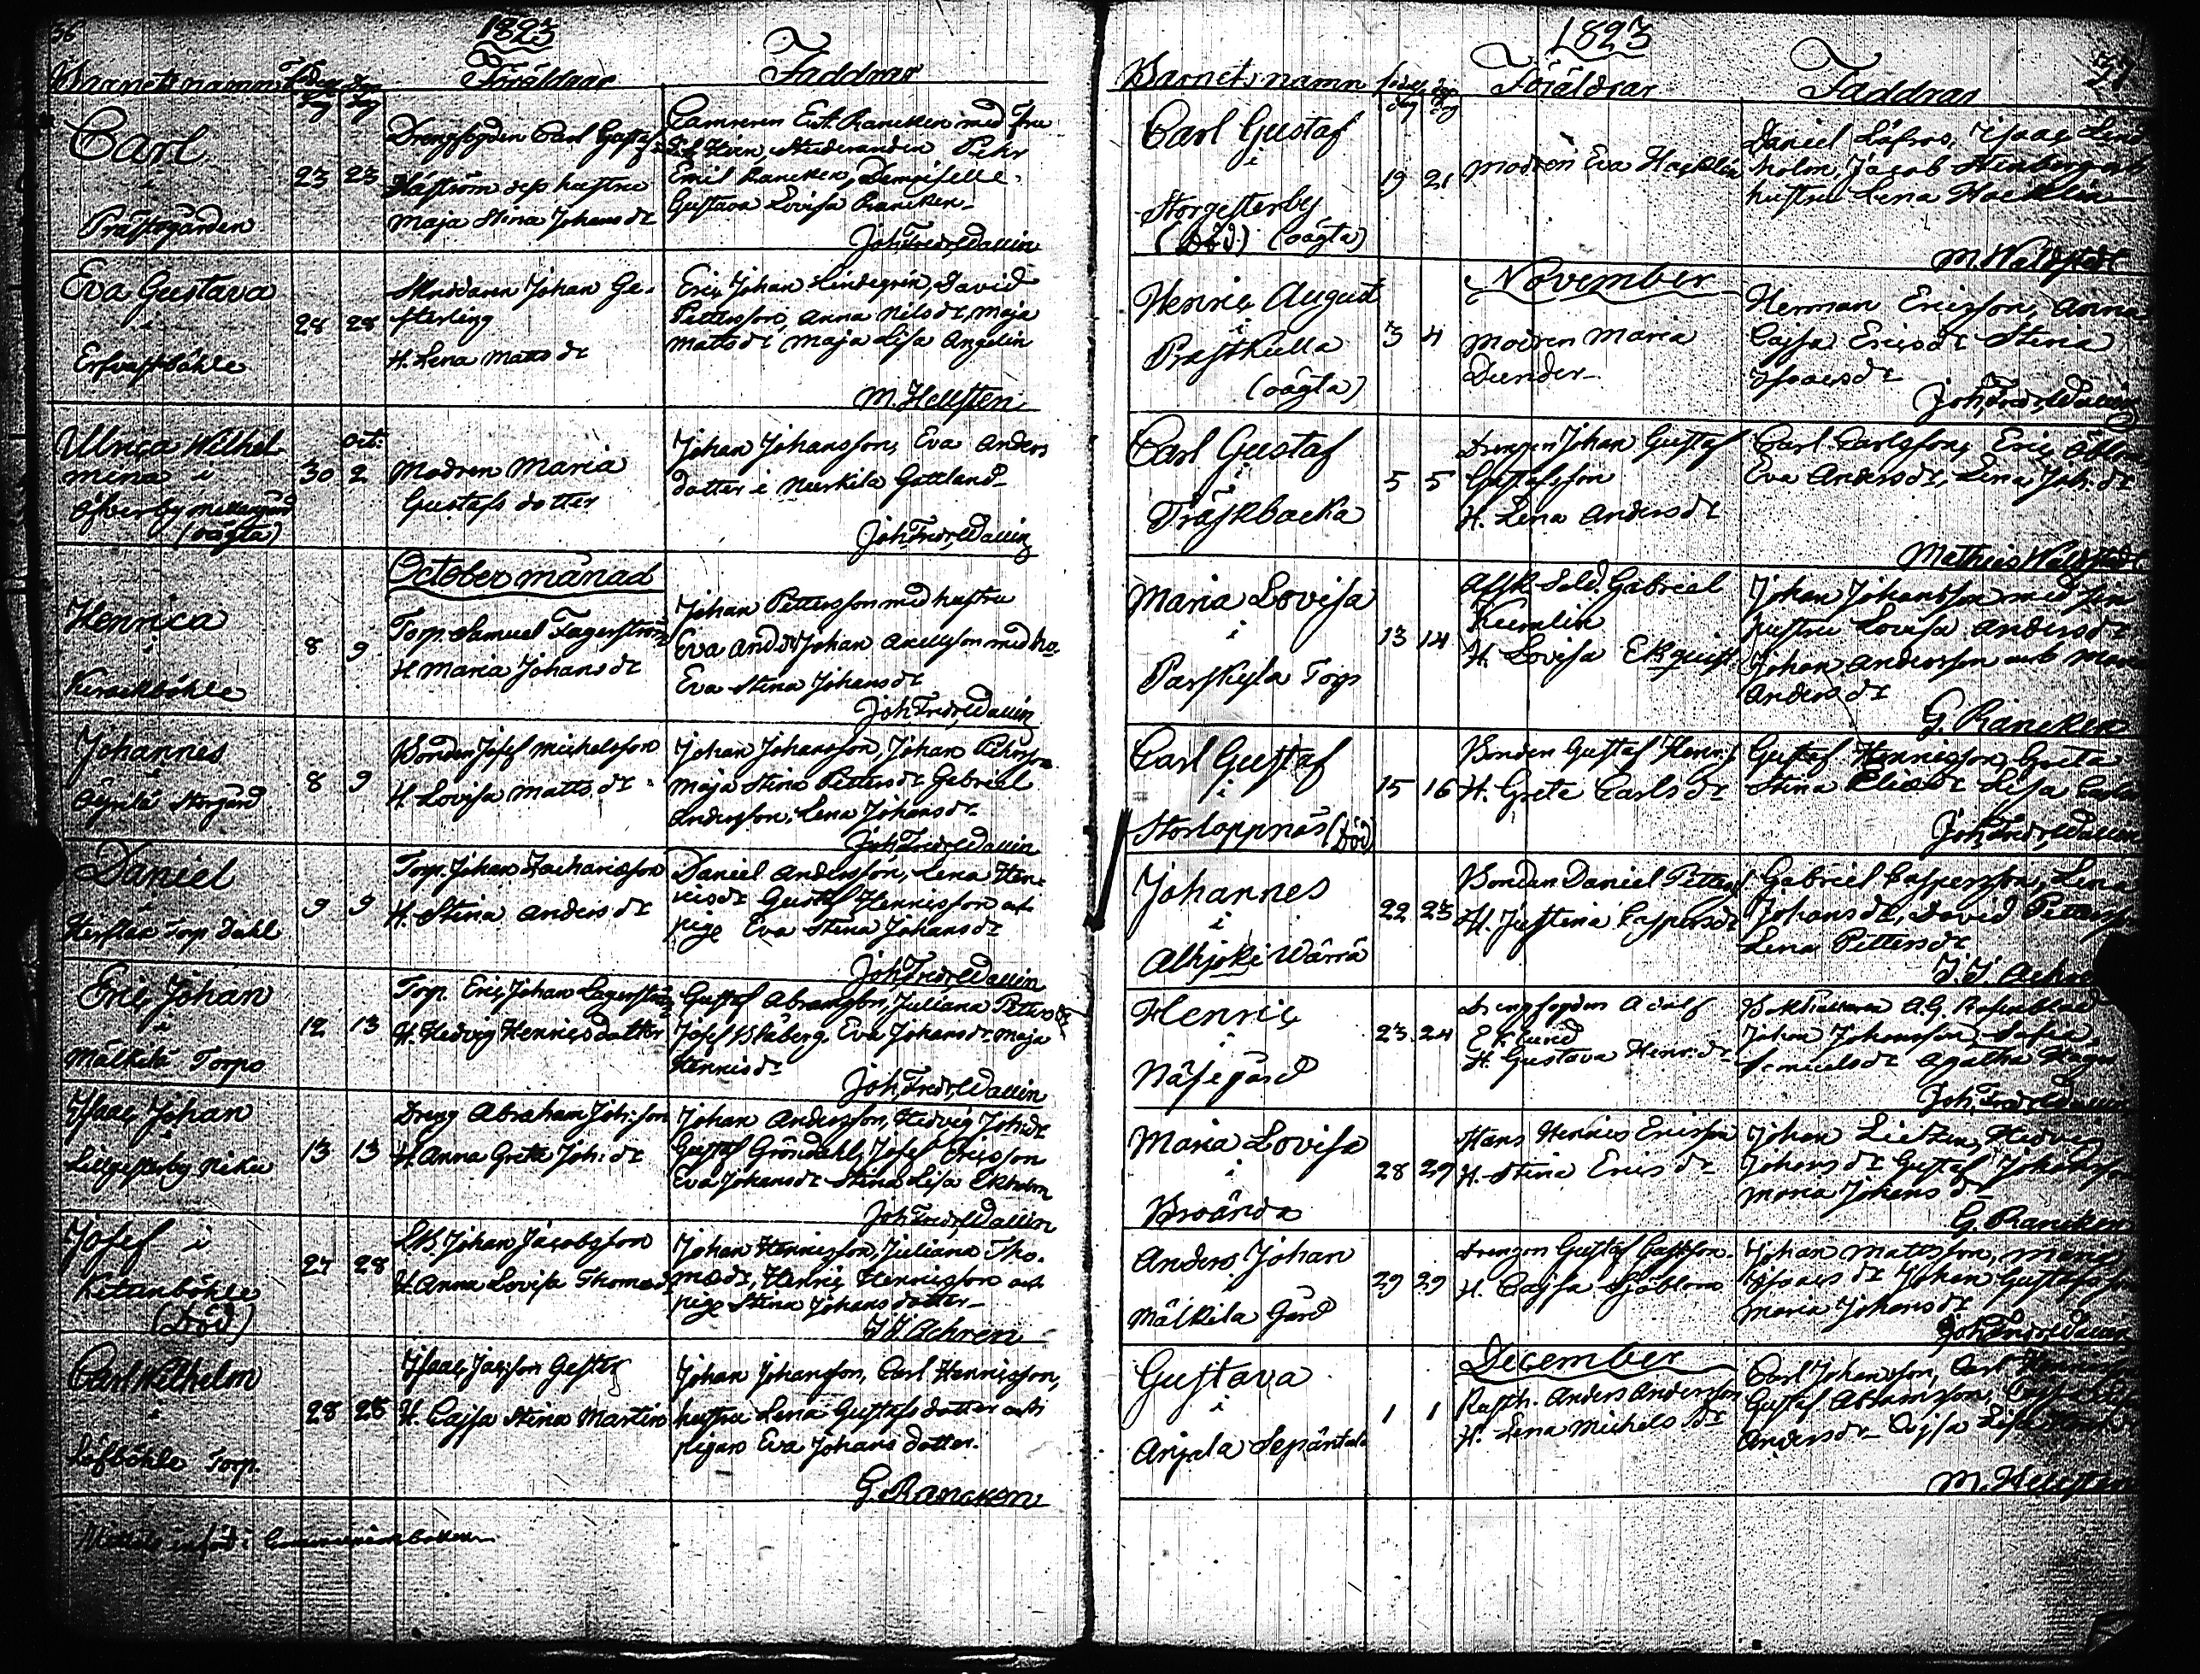 56
1823
Barnets namn Föd. dag Döp. dag Föräldrar Faddrar
Carl
i
Prästegården
23 23
Drengfogden Carl Gustaf
Häström dess hustru
Maja Stina Johansdr
Camreren Rancken med Fru
Studeranden Pehr
Emil Rancken, Demoiselle
Gustava Lovisa Rancken
Joh. Fredr. Wallin
Eva Gustava
i
Erfvastböhle
28 28
Skreddaren Johan Ge-
sterling
H. Lena Mattsdr
Eric Johan Lindegren, David
Pettersson, Anna Nilsdr, Maja
Mattsdr Maja Lisa Angelin
M. Hellsten
Ulrica Wilhel-
mina i
Öfverby
(oägta)
30 Oct: 2
Modren Maria
Gustafs dotter
Johan Johansson, Eva Anders
dotter i Gottland
Joh. Fredr. Wallin
October månad
Henrica
i
8 9
Torp. Samuel Fagerström
H. Maria Johansdr
Johan Pettersson med hustru
Eva And.dr Johan Axellsson med hu.
Eva Stina Johansdr
Joh. Fredr. Wallin
Johannes
i
Storgård
8 9
Bonden Josef Michelsson
H. Lovisa Matts. dr
Johan Johansson, Johan Pehrsson
Maja Stina Pettersdr Gabriel
Andersson, Lena Johansdr
Joh. Fredr. Wallin
Daniel
i
Torp Dahl
9 9
Torp. Johan Zachariasson
H. Stina Andersdr
Daniel Andersson, Lena Hen-
ricsdr Gustaf Henricsson och
pige Eva Stina Johansdr
Joh. Fredr. Wallin
Eric Johan
i
Mälkilä Torp
12 13
Torp. Eric Johan Lagerström
H. Hedvig Henricsdotter
Gustaf Abramsson, Juliana Pettersdr
Josef Blåberg, Eva Johansdr, Maja
Henricsdr
Joh. Fredr. Wallin
Isaac Johan
i
Lillgesterby Niku
13 13
Dreng Abraham Joh:sson
H. Anna Greta Joh: dr
Johan Andersson, Hedvig Joh:dr
Gustaf Gröndahl, Josef Ericsson
Eva Johansdr Stina Lisa Ekholm
Joh. Fredr. Wallin
Josef i
Kettenböhle
(Död)
27 28
Johan Jacobsson
H. Anna Lovisa Thomasdr
Johan Henricsson, Juliana Tho-
masdr, Henric Henricsson och
pige Stina Johans dotter
J. J. Achren
Carl Wilhelm
i
Löfböhle Torp.
28 28
Isaac Jacsson Gester
H. Cajsa Stina Martin
Johan Johansson, Carl Henricsson,
hustru Lena Gustafs dotter och
pigan Eva Johans dotter.
G. Rancken
införd i Communionboken
1823
57
Barnets namn födelse dag döp dag Föräldrar Faddrar
Carl Gustaf
i
Storgesterby
(Död) (oägta)
19 21
Modren Eva Hacklin
Daniel Löfros, Isaac Lind-
holm, Jacob Stenberg och
hustru Lena Hacklin
M. Waldstedt
November
Henric August
i
Prästkulla
(oägta)
3 4
Modren Maria
Dunder
Herman Ericsson, Anna
Cajsa Ericsdr Stina
Isaacsdr
Joh. Fredr. Wallin
Carl Gustaf
i
Träskbacka
5 5
Drengen Johan Gustaf
Gustafsson
H. Lena Andersdr
Carl Carlsson, Eric Öblom
Eva Andersdr, Lena Joh: dr
Matheus Waldstedt
Maria Lovisa
i
Parskyla Torp
13 14
Afsk. Sold. Gabriel
Kumlin
H. Lovisa Ekquist
Johan Johansson med sin
hustru Lovisa Andersdr
Johan Andersson och Maria
Andersdr
G. Rancken
Carl Gustaf
i
Storloppnäs (Död)
15 16
Bonden Gustaf Henrs
H. Greta Carlsdr
Gustaf Henricsson, Greta
Stina Eliasdr Lisa Carls
Joh. Fredr. Wallin
Johannes
i
Alhjoki Wärrä
22 23
Bonden Daniel Petters
H. Justina Caspersdr
Gabriel Caspersson, Lena
Johansdr, David Petterss
Lena Pettersdr
J. J. Achren
Henric
i
Näsegård
23 24
Drengfogden Adolf
Eklund
H. Gustava Henr: dr
Bokhållaren A. G. Rosenblad
Johan Johansson, Sofia
Samuelsdr Agatha Hagm
Joh. Fredr. Wallin
Maria Lovisa
i
Broända
28 29
Hans Henric Ericsson
H. Stina Erics dr
Johan Lietzen, Hedvig
Johansdr Gustaf Johansson
Maria Johans dr
G. Rancken
Anders Johan
i
Mälkila Gård
29 29
Drengen Gustaf Gustfson
H. Cajsa Sjöblom
Johan Mattsson, Maria
Isaacs dr Johan Gustafsson
Maria Johansdr
Joh. Fredr. Wallin
December
Gustava
i
Anjala Sepäntalo
1 1
Rusth. Anders Andersson
H. Lena Michels dr
Carl Johansson, Carl Henricsson
Gustaf Abramsson, Cajsa Lisa
Andersdr Cajsa Lisa
M. Hellsten